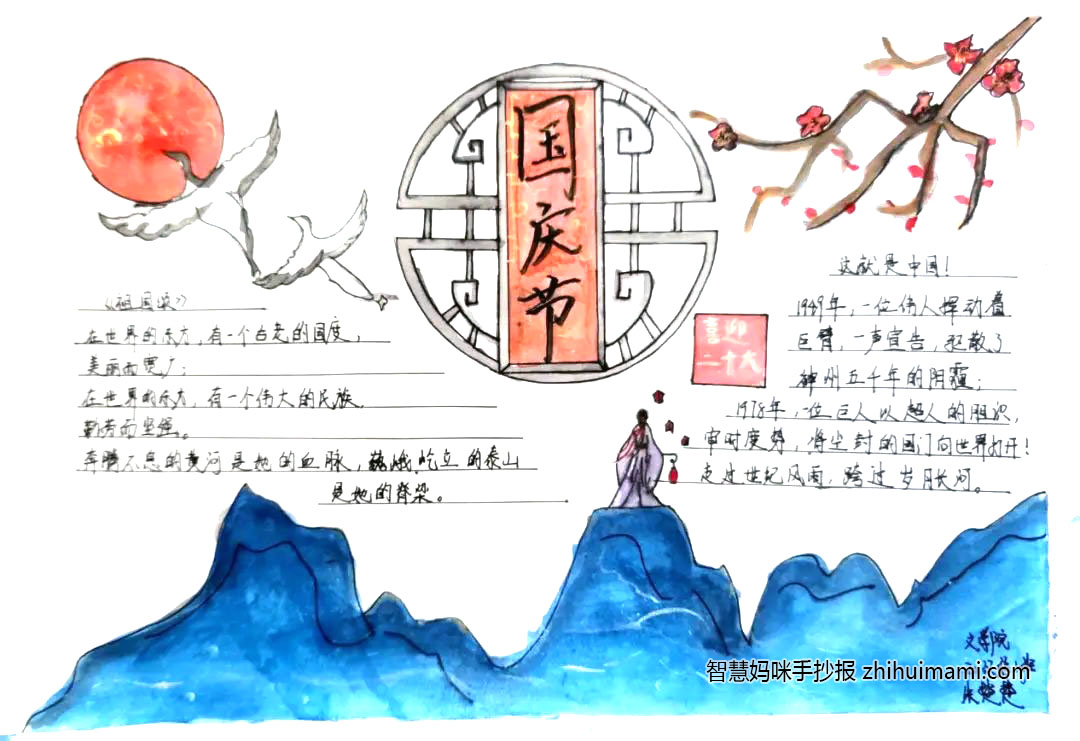 国庆节
《祖国颂》
在世界的东方,有一个古老的国度,
美丽而宽广;
在世界的东方,有一个伟大的民族,
勤劳而坚强。
奔腾不息的黄河是她的血脉,巍峨屹立的泰山
是她的脊梁。
喜迎
二十大
这就是中国!
1949年,一位伟人挥动着
巨臂,一声宣告,驱散了
神州五千年的阴霾;
1978年,一位巨人以超人的胆识,
审时度势,将尘封的国门向世界打开!
走过世纪风雨,跨过岁月长河。
文学院
智慧妈咪手抄报 zhihuimami.com
楚楚